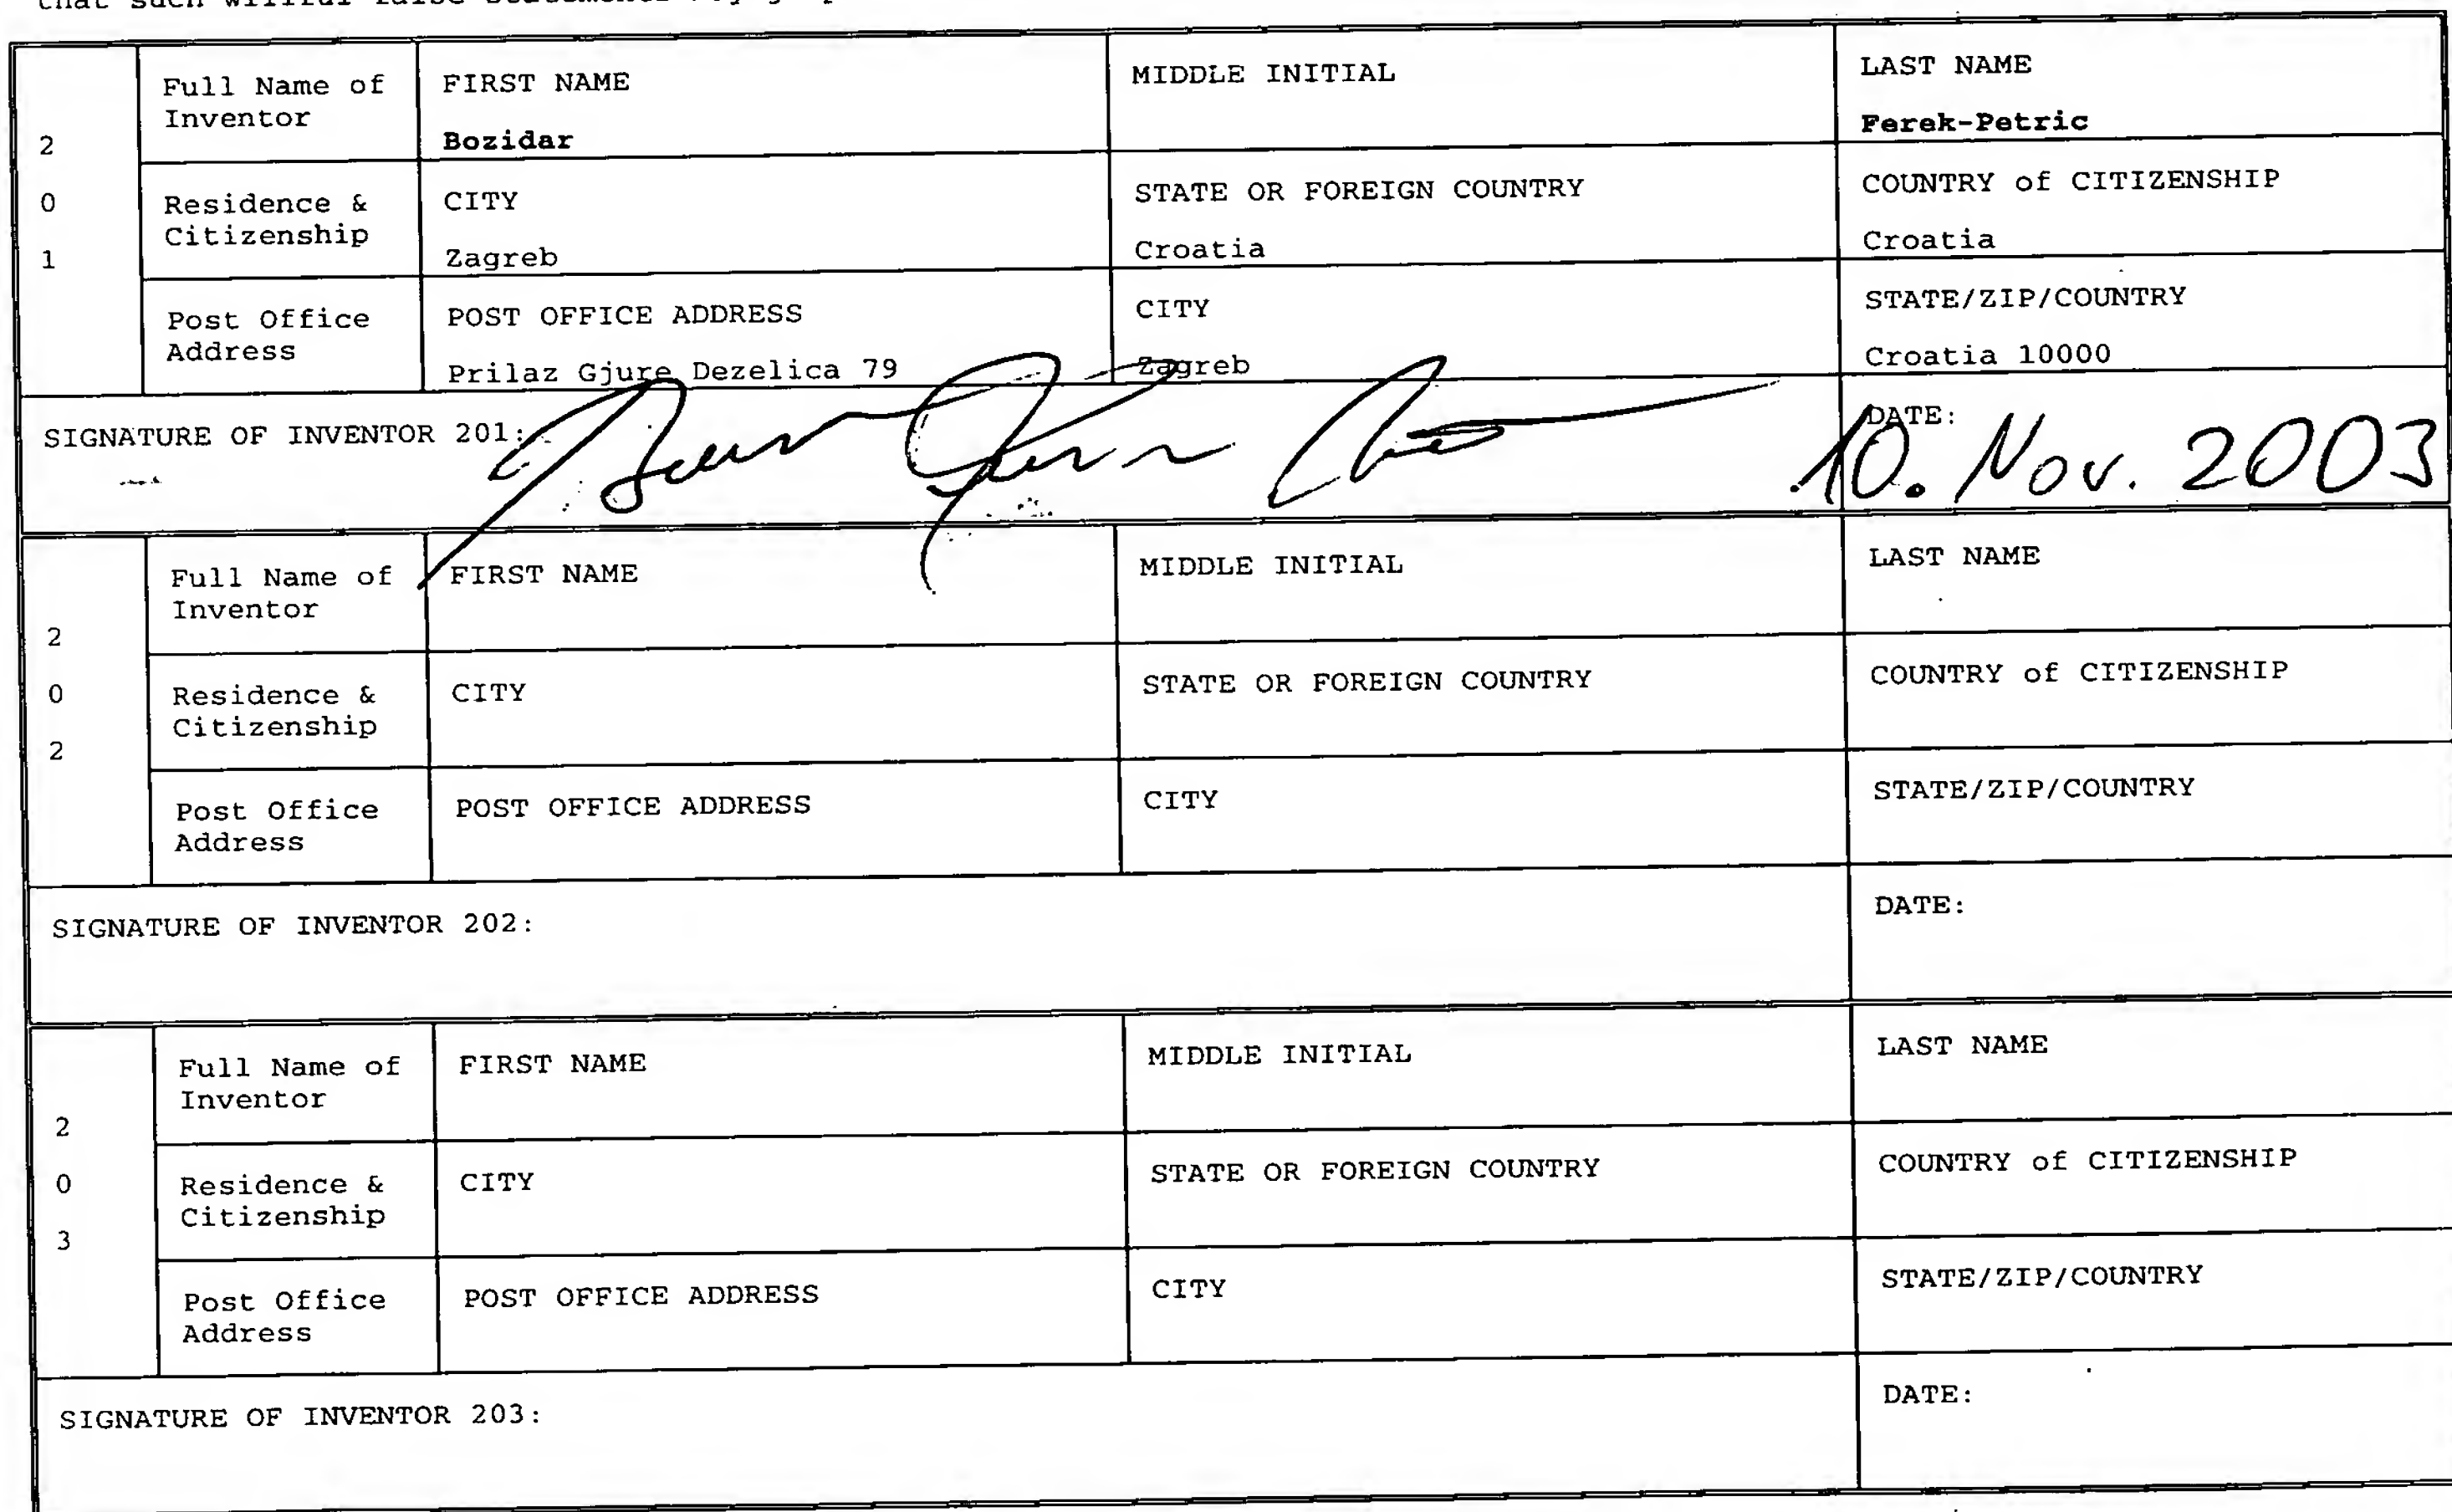 that such willful false statements
FIRST NAME MIDDLE INITIAL LAST NAME
Full Name of
Inventor
Bozidar Ferek-Petric
2
0
1
Residence &
Citizenship
CITY STATE OR FOREIGN COUNTRY COUNTRY of CITIZENSHIP
Zagreb Croatia Croatia
Post Office
Address
POST OFFICE ADDRESS CITY STATE/ZIP/COUNTRY
Prilaz Gjure Dezelica 79 Zagreb Croatia 10000
SIGNATURE OF INVENTOR 201: DATE:
10. Nov. 2003
Full Name of
Inventor
FIRST NAME MIDDLE INITIAL LAST NAME
2
0
2
Residence &
Citizenship
CITY STATE OR FOREIGN COUNTRY COUNTRY of CITIZENSHIP
Post Office
Address
POST OFFICE ADDRESS CITY STATE/ZIP/COUNTRY
SIGNATURE OF INVENTOR 202: DATE:
Full Name of
Inventor
FIRST NAME MIDDLE INITIAL LAST NAME
2
0
3
Residence &
Citizenship
CITY STATE OR FOREIGN COUNTRY COUNTRY of CITIZENSHIP
Post Office
Address
POST OFFICE ADDRESS CITY STATE/ZIP/COUNTRY
SIGNATURE OF INVENTOR 203: DATE: